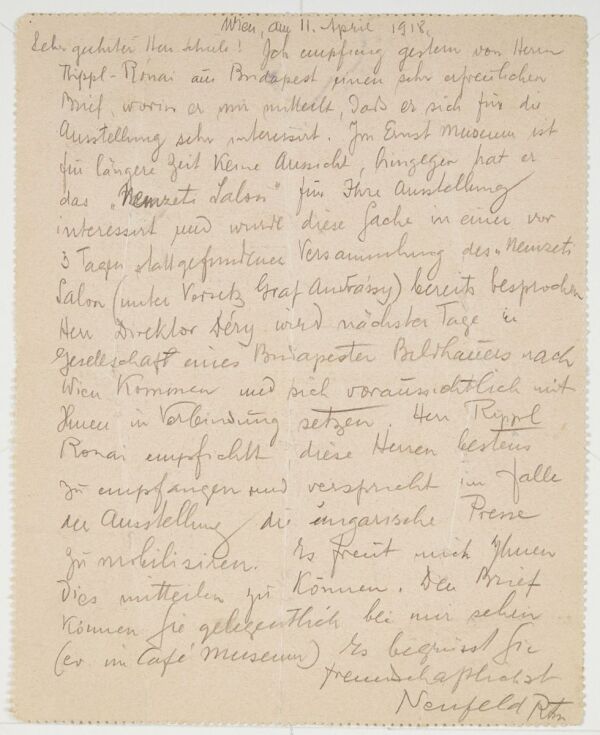 Wien, am 11. April 1918.
Sehr geehrter Herr Schiele! Ich empfing gestern von Herrn
Rippl-Rónai aus Budapest einen sehr erfreulichen
Brief, worin er mir mitteilt, daß er sich für die
Ausstellung sehr interessirt. Im Ernst Museum ist
für längere Zeit keine Aussicht, hingegen hat er
das „Nemzeti Salon" für Ihre Ausstellung
interessirt und wurde diese Sache in einer vor
3 Tagen stattgefundenen Versammlung des „Nemzeti
Salon (unter Vorsitz Graf Andrássy) bereits besprochen
Herr Direktor Déry wird nächster Tage in
Gesellschaft eines Budapester Bildhauers nach
Wien kommen und sich voraussichtlich mit
Ihnen in Verbindung setzen. Herr Rippl
Ronai empfiehlt diese Herren bestens
zu empfangen und verspricht im Falle
der Ausstellung die ungarische Presse
zu mobilisiren. Es freut mich Ihnen
Dies mitteilen zu können. Den Brief
können Sie gelegentlich bei mir sehen
(ev. im Café Museum) Es begrüsst Sie
freundschaftlichst
Neufeld